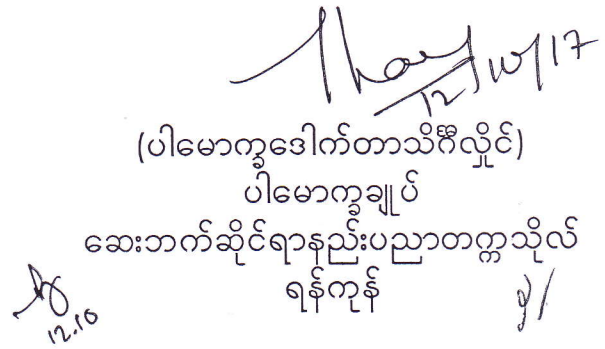 12/10/17
(ပါမောက္ခဒေါက်တာသိင်္ဂီလှိုင်)
ပါမောက္ခချုပ်
ဆေးဘက်ဆိုင်ရာနည်းပညာတက္ကသိုလ်
ရန်ကုန်
12.10